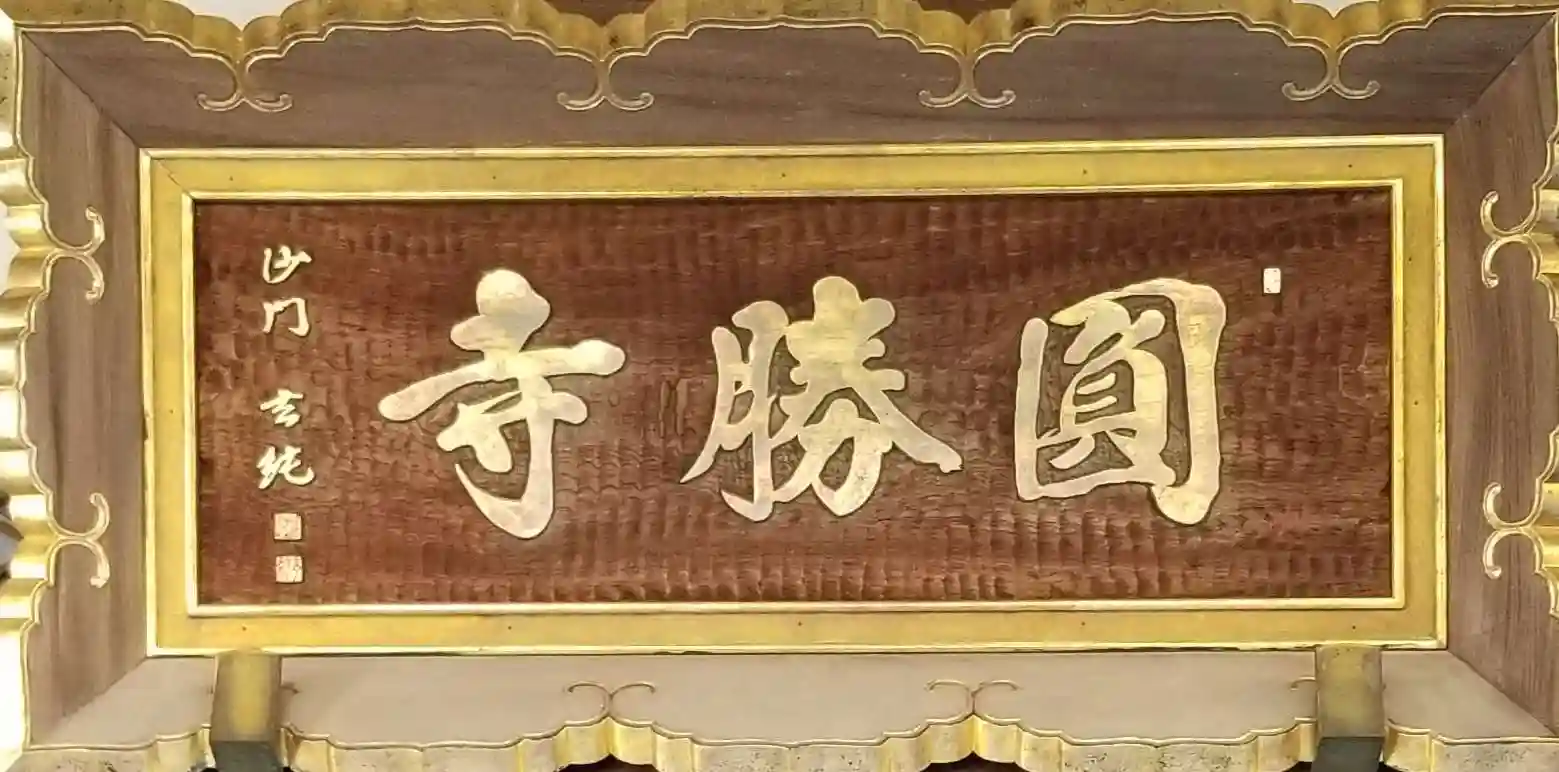 圓勝寺
沙門 玄純